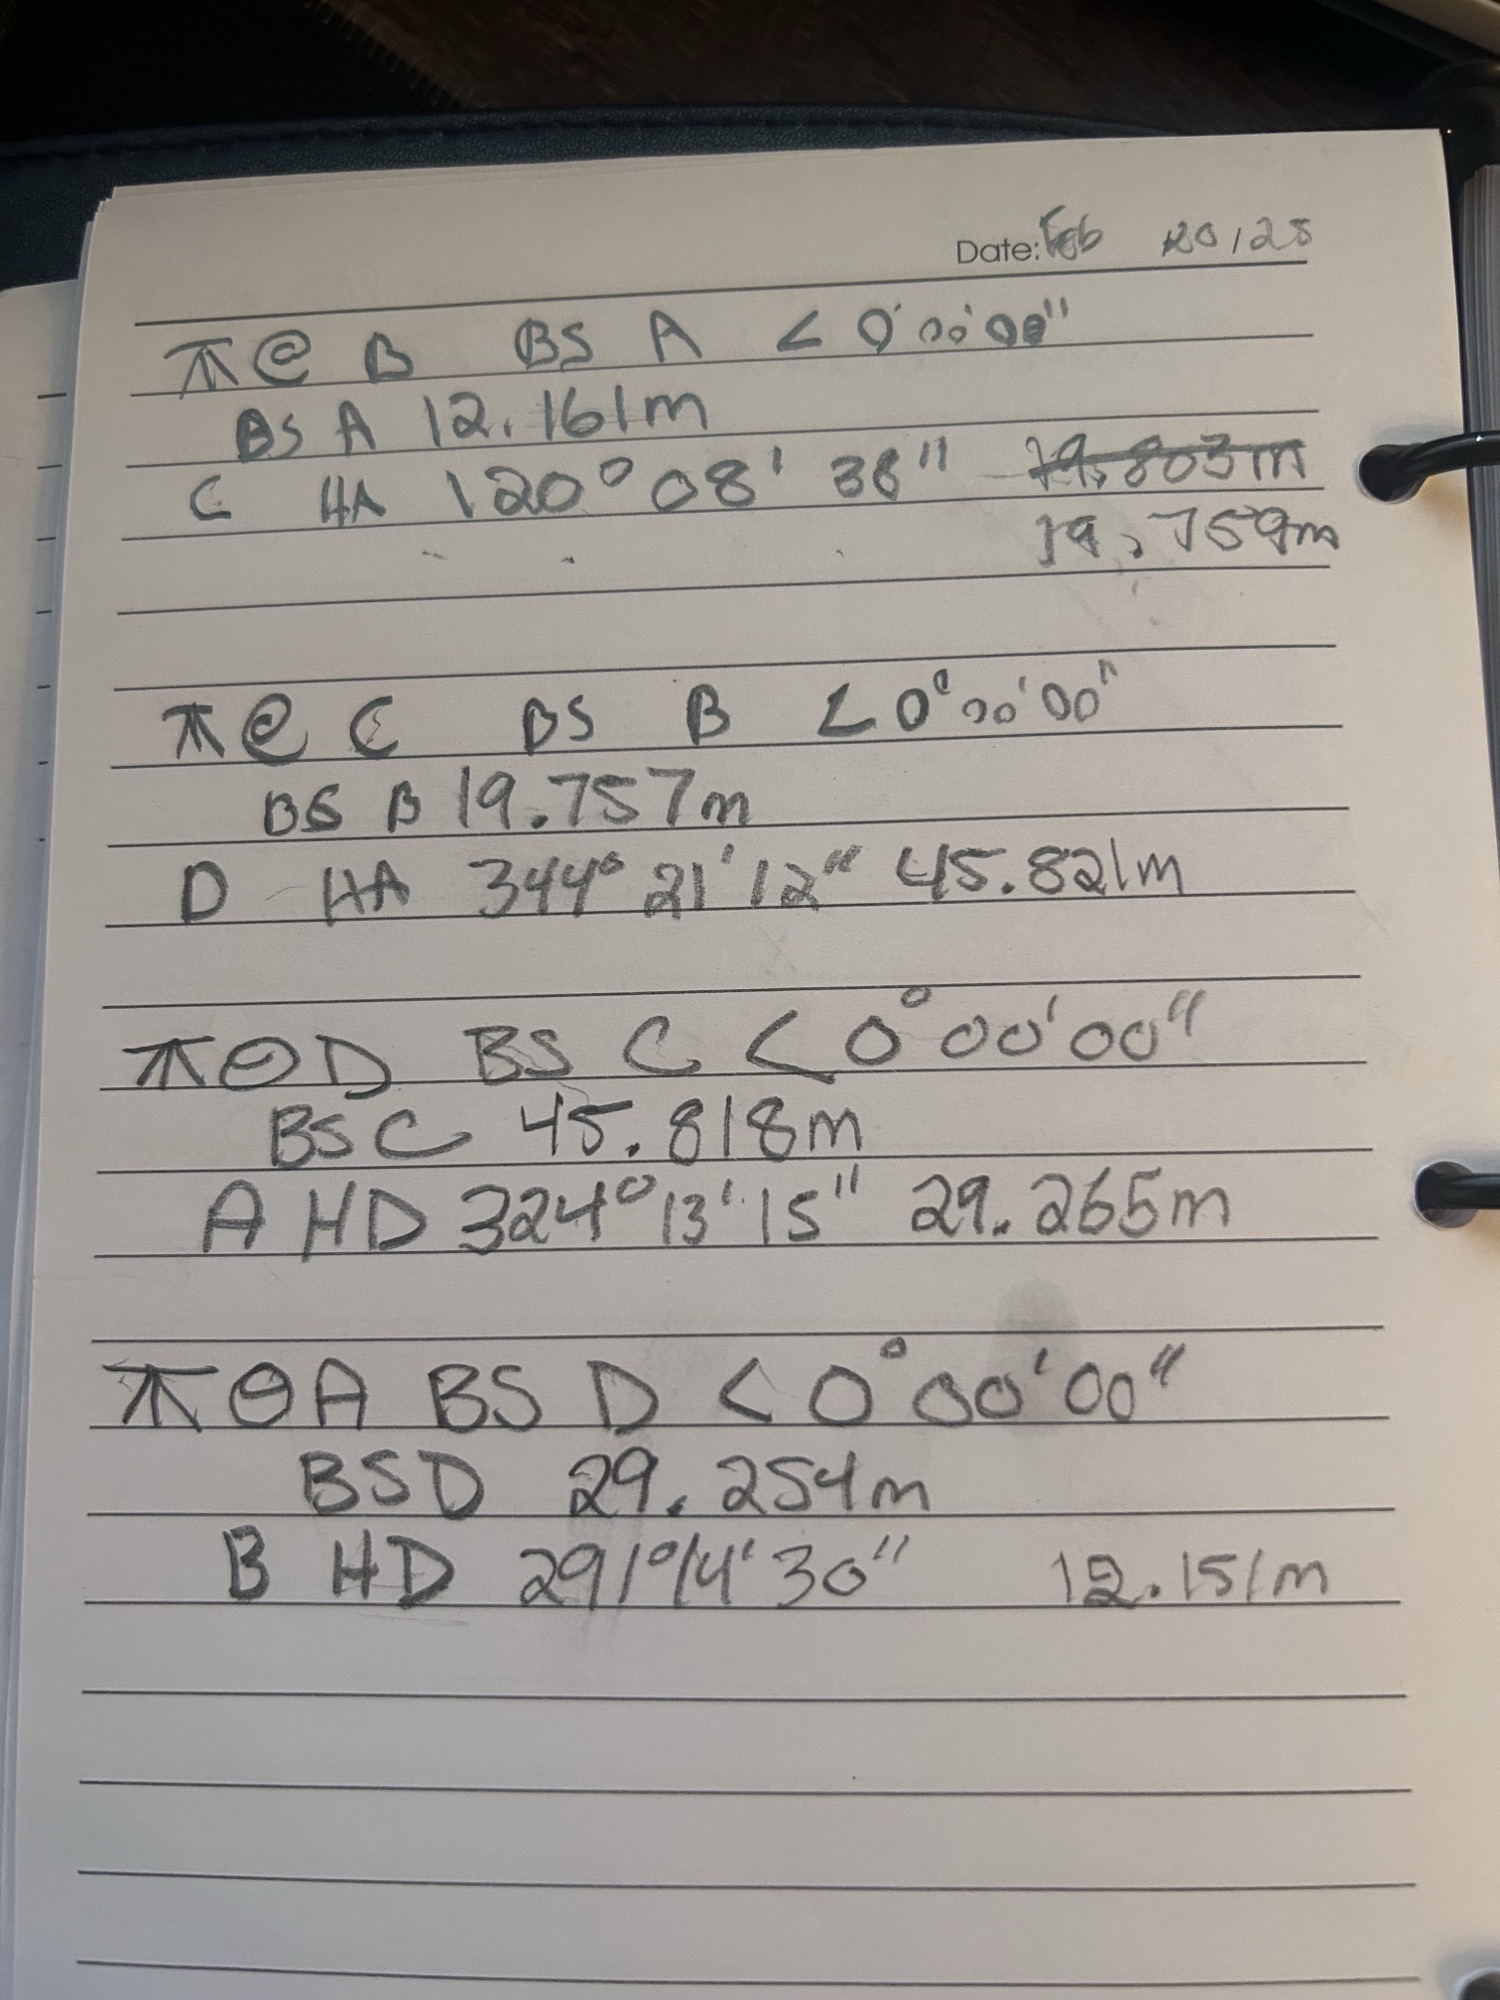 Date: Feb 20/25
⊼@ B BS A < 0°00'00"
BS A 12.161m
C HA 120°08'38" 19.803m
19.759m
⊼@ C BS B < 0°00'00"
BS B 19.757m
D HA 344°21'12" 45.821m
⊼@ D BS C < 0°00'00"
BS C 45.818m
A HD 324°13'15" 29.265m
⊼@ A BS D < 0°00'00"
BSD 29.254m
B HD 291°14'30" 12.151m